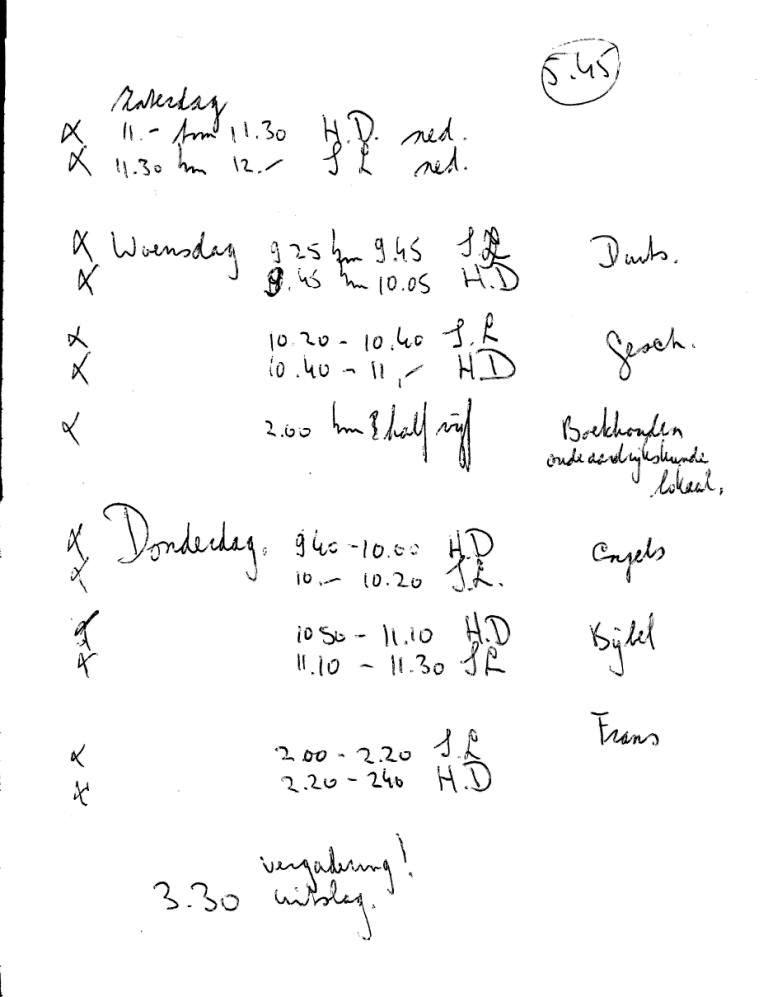 5.45
Zaterdag
X 11.- t/m 11.30 H.D. ned.
X 11.30 t/m 12.- S L ned.
X Woensdag 9 25 t/m 9.45 S.L Duits.
X 9.45 t/m 10.05 H.D
X 10.20 - 10.40 S.L Gesch.
X 10.40 - 11,- HD
X 2.00 t/m half vijf Boekhouden
oude aardrijkskunde
lokaal.
X Donderdag. 9 40 - 10.00 H.D Engels
X 10.- 10.20 S.L.
X 10 50 - 11.10 H.D Bijbel
X 11.10 - 11.30 SL
Frans
X 2 00 - 2.20 S.L
X 2.20 - 240 H.D
vergadering!
3.30 uitslag.